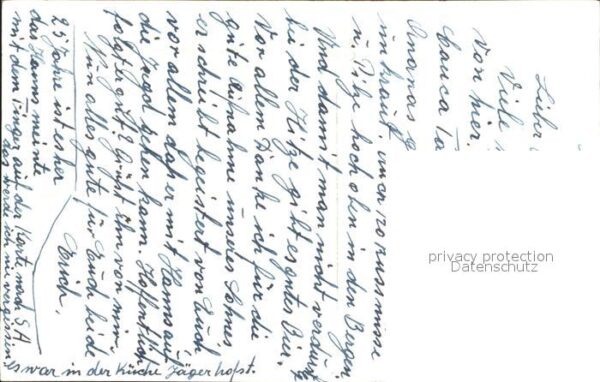 Liebe
Viele
von hier.
Cauca Ta
Ananas g
in kraut
u. Itze hoch oben in den Bergen.
Und damit man nicht verdurste
bei der Hitze gibt es gutes Bier.
Vor allem danke ich für die
gute Aufnahme unseres Sohnes
er schreibt begeistert von Euch
vor allem daß er mit Hanns auf
die Jagd gehen kann. Hoffentlich
folgt er gut? Grüßt ihn von mir.
Nun alles gute für Euch beide
Erich.
25 Jahre ist es her
das Hanns meinte
mit dem Finger auf der Karte nach S.A
das werde ich nie vergessen
es war in der Küche Jägerhofst.
privacy protection
Datenschutz